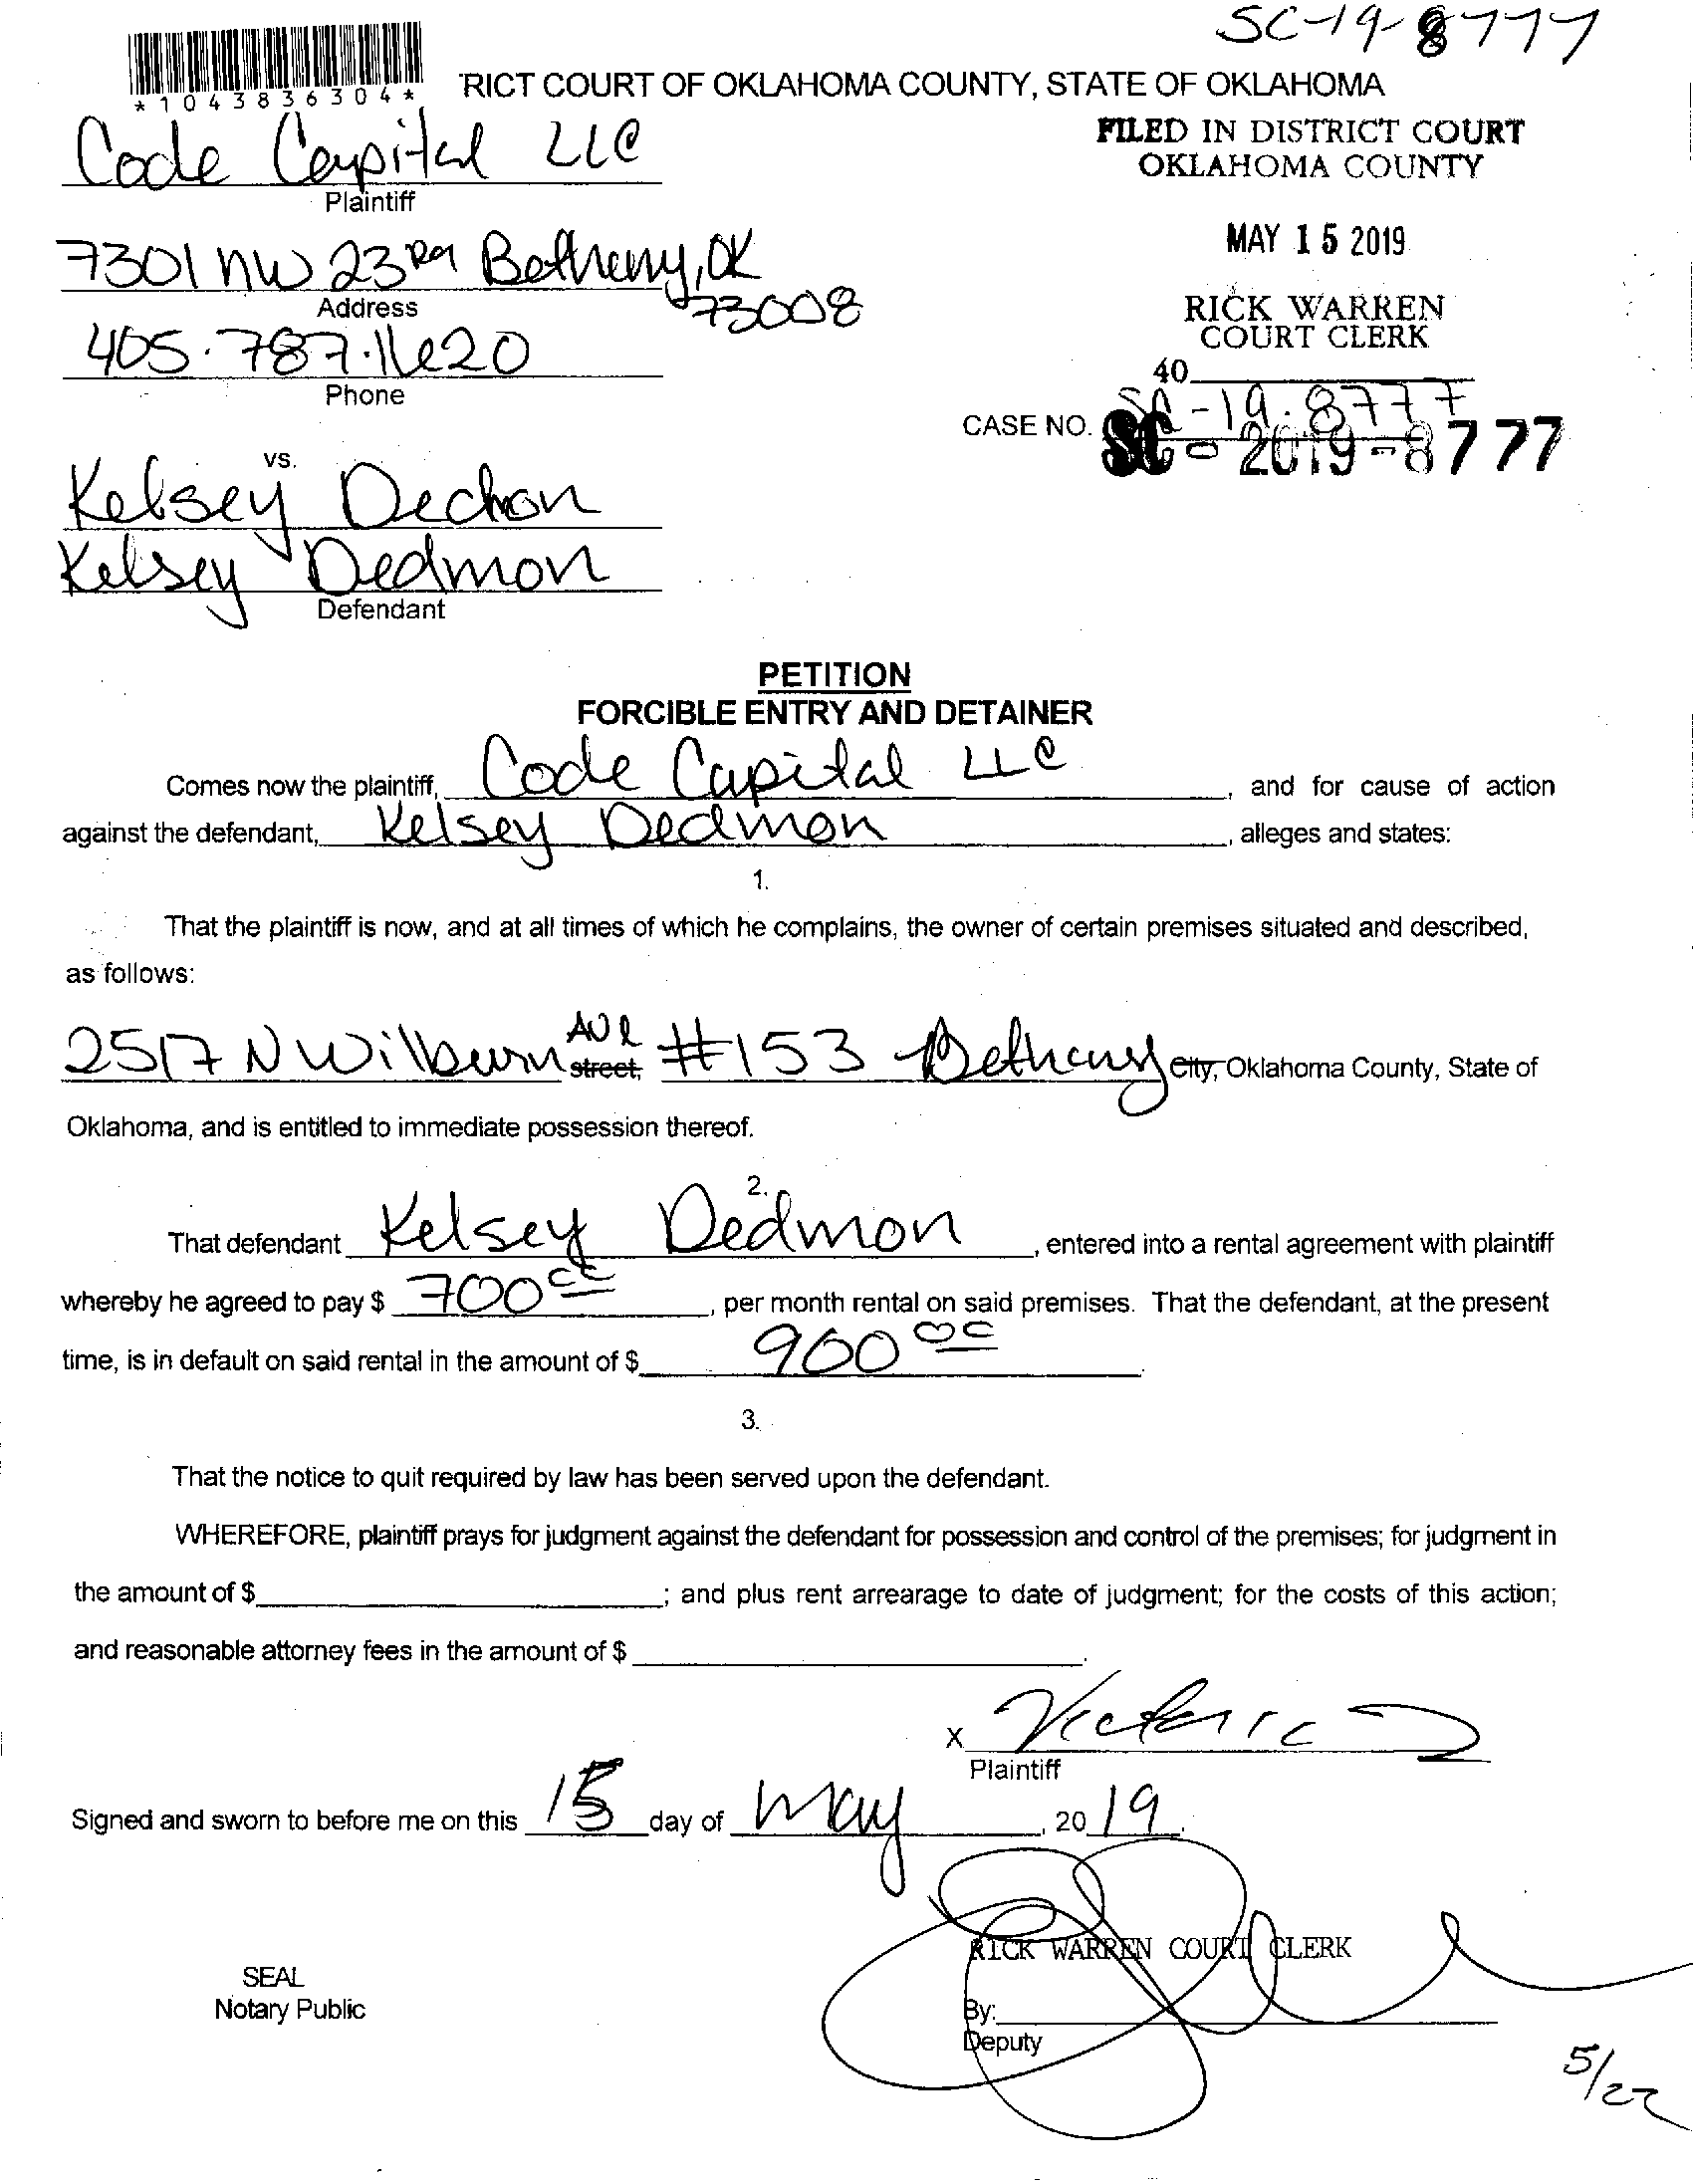 SC-19-8777
*1043836304*
RICT COURT OF OKLAHOMA COUNTY, STATE OF OKLAHOMA
FILED IN DISTRICT COURT
OKLAHOMA COUNTY
Code Capital LLC
Plaintiff
MAY 15 2019
7301 NW 23rd Bethany, OK
73008
Address
RICK WARREN
COURT CLERK
405.787.1620
Phone
40
SC-19-8777
CASE NO. SC-2019-8777
vs.
Kelsey
Kelsey Dedmon
Defendant
PETITION
FORCIBLE ENTRY AND DETAINER
Comes now the plaintiff, Code Capital LLC, and for cause of action
against the defendant, Kelsey Dedmon, alleges and states:
1.
That the plaintiff is now, and at all times of which he complains, the owner of certain premises situated and described,
as follows:
2517 N Wilburn Ave street, #153 Bethany City, Oklahoma County, State of
Oklahoma, and is entitled to immediate possession thereof.
2.
That defendant Kelsey Dedmon, entered into a rental agreement with plaintiff
whereby he agreed to pay $ 700 00, per month rental on said premises. That the defendant, at the present
time, is in default on said rental in the amount of $ 900 00.
3.
That the notice to quit required by law has been served upon the defendant.
WHEREFORE, plaintiff prays for judgment against the defendant for possession and control of the premises; for judgment in
the amount of $ ; and plus rent arrearage to date of judgment; for the costs of this action;
and reasonable attorney fees in the amount of $ .
X
Plaintiff
Signed and sworn to before me on this 15 day of May, 2019.
RICK WARREN COURT CLERK
SEAL
Notary Public
By:
Deputy
5/22